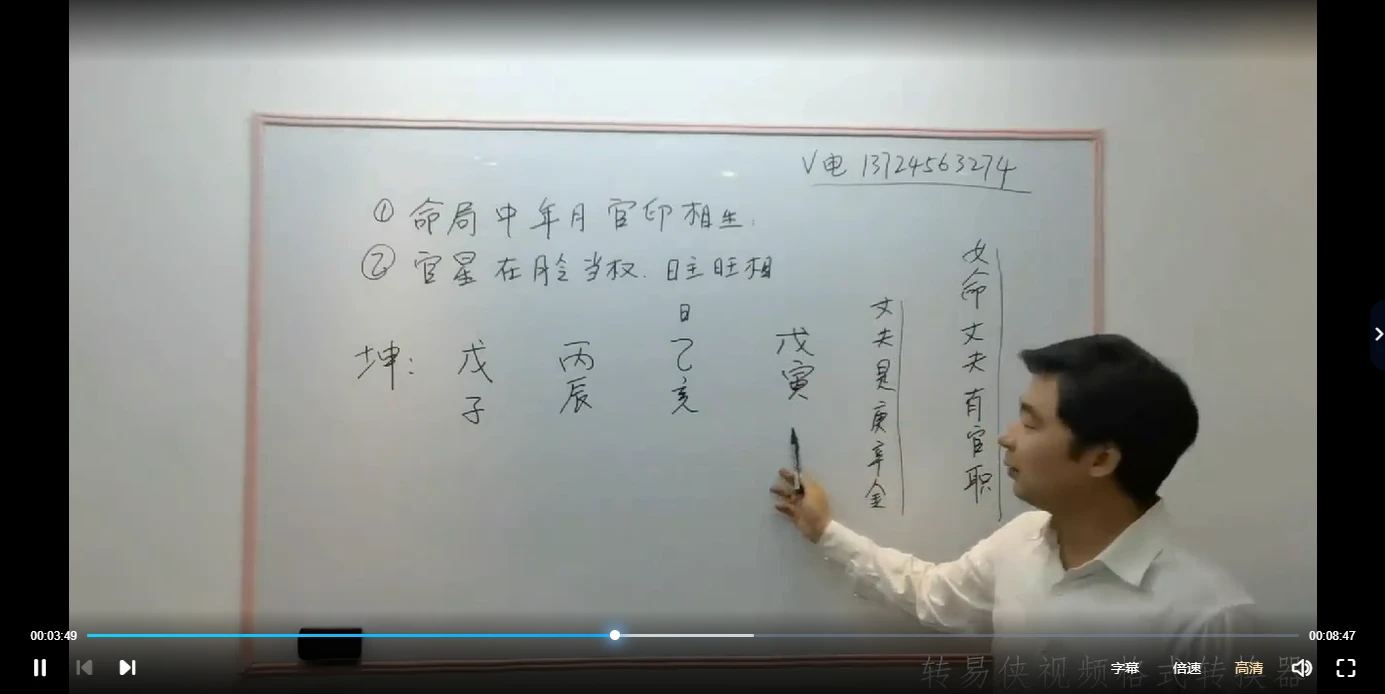 V电 13724563274
① 命局中年月官印相生.
② 官星在月令当权.日主旺相
日
坤: 戊 丙 乙 戊
子 辰 亥 寅
丈夫是庚辛金
女命丈夫有官职
00:03:49
00:08:47
字幕 倍速 高清
转易侠视频格式转换器